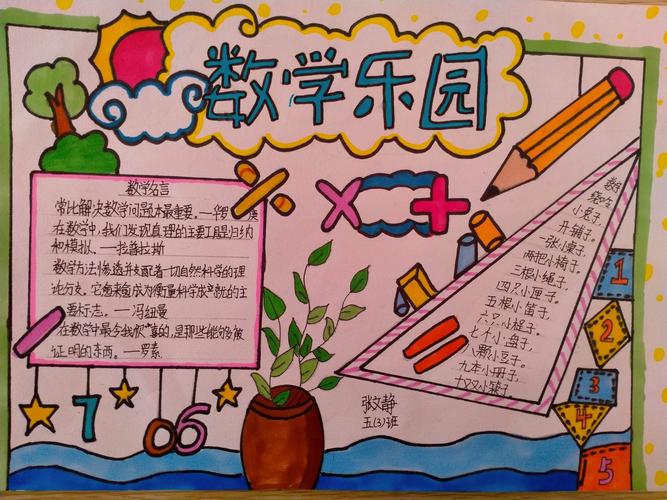 数学乐园
数学名言
常比解决数学问题本最重要。—华罗庚
在数学中,我们发现真理的主要工具是归纳
和模拟。—拉普拉斯
数学方法惨透并支配着一切自然科学的理
论分支。它愈来愈成为衡量科学成就的主
要标志。—冯纽曼
在数学中最令我欣喜的,是那些能够被
证明的东西。—罗素
7 0 6
数学
小兔子,
开铺子。
一张小桌子,
两把小椅子,
三根小绳子,
四只小匣子,
五根小笛子,
六只小棍子,
七个小盘子,
八颗小豆子,
九本小册子,
十双小筷子。
张文静
五(3)班
1
2
3
4
5